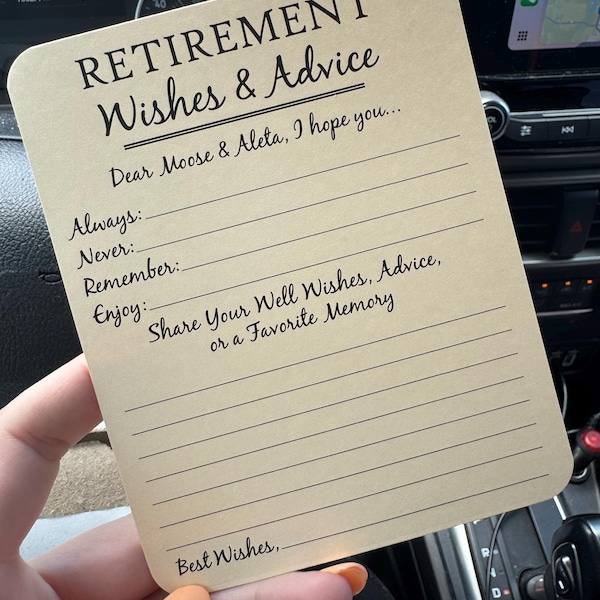 RETIREMENT
Wishes & Advice
Dear Moose & Aleta, I hope you...
Always:
Never:
Remember:
Enjoy:
Share Your Well Wishes, Advice,
or a Favorite Memory
Best Wishes,
40
P
R
D